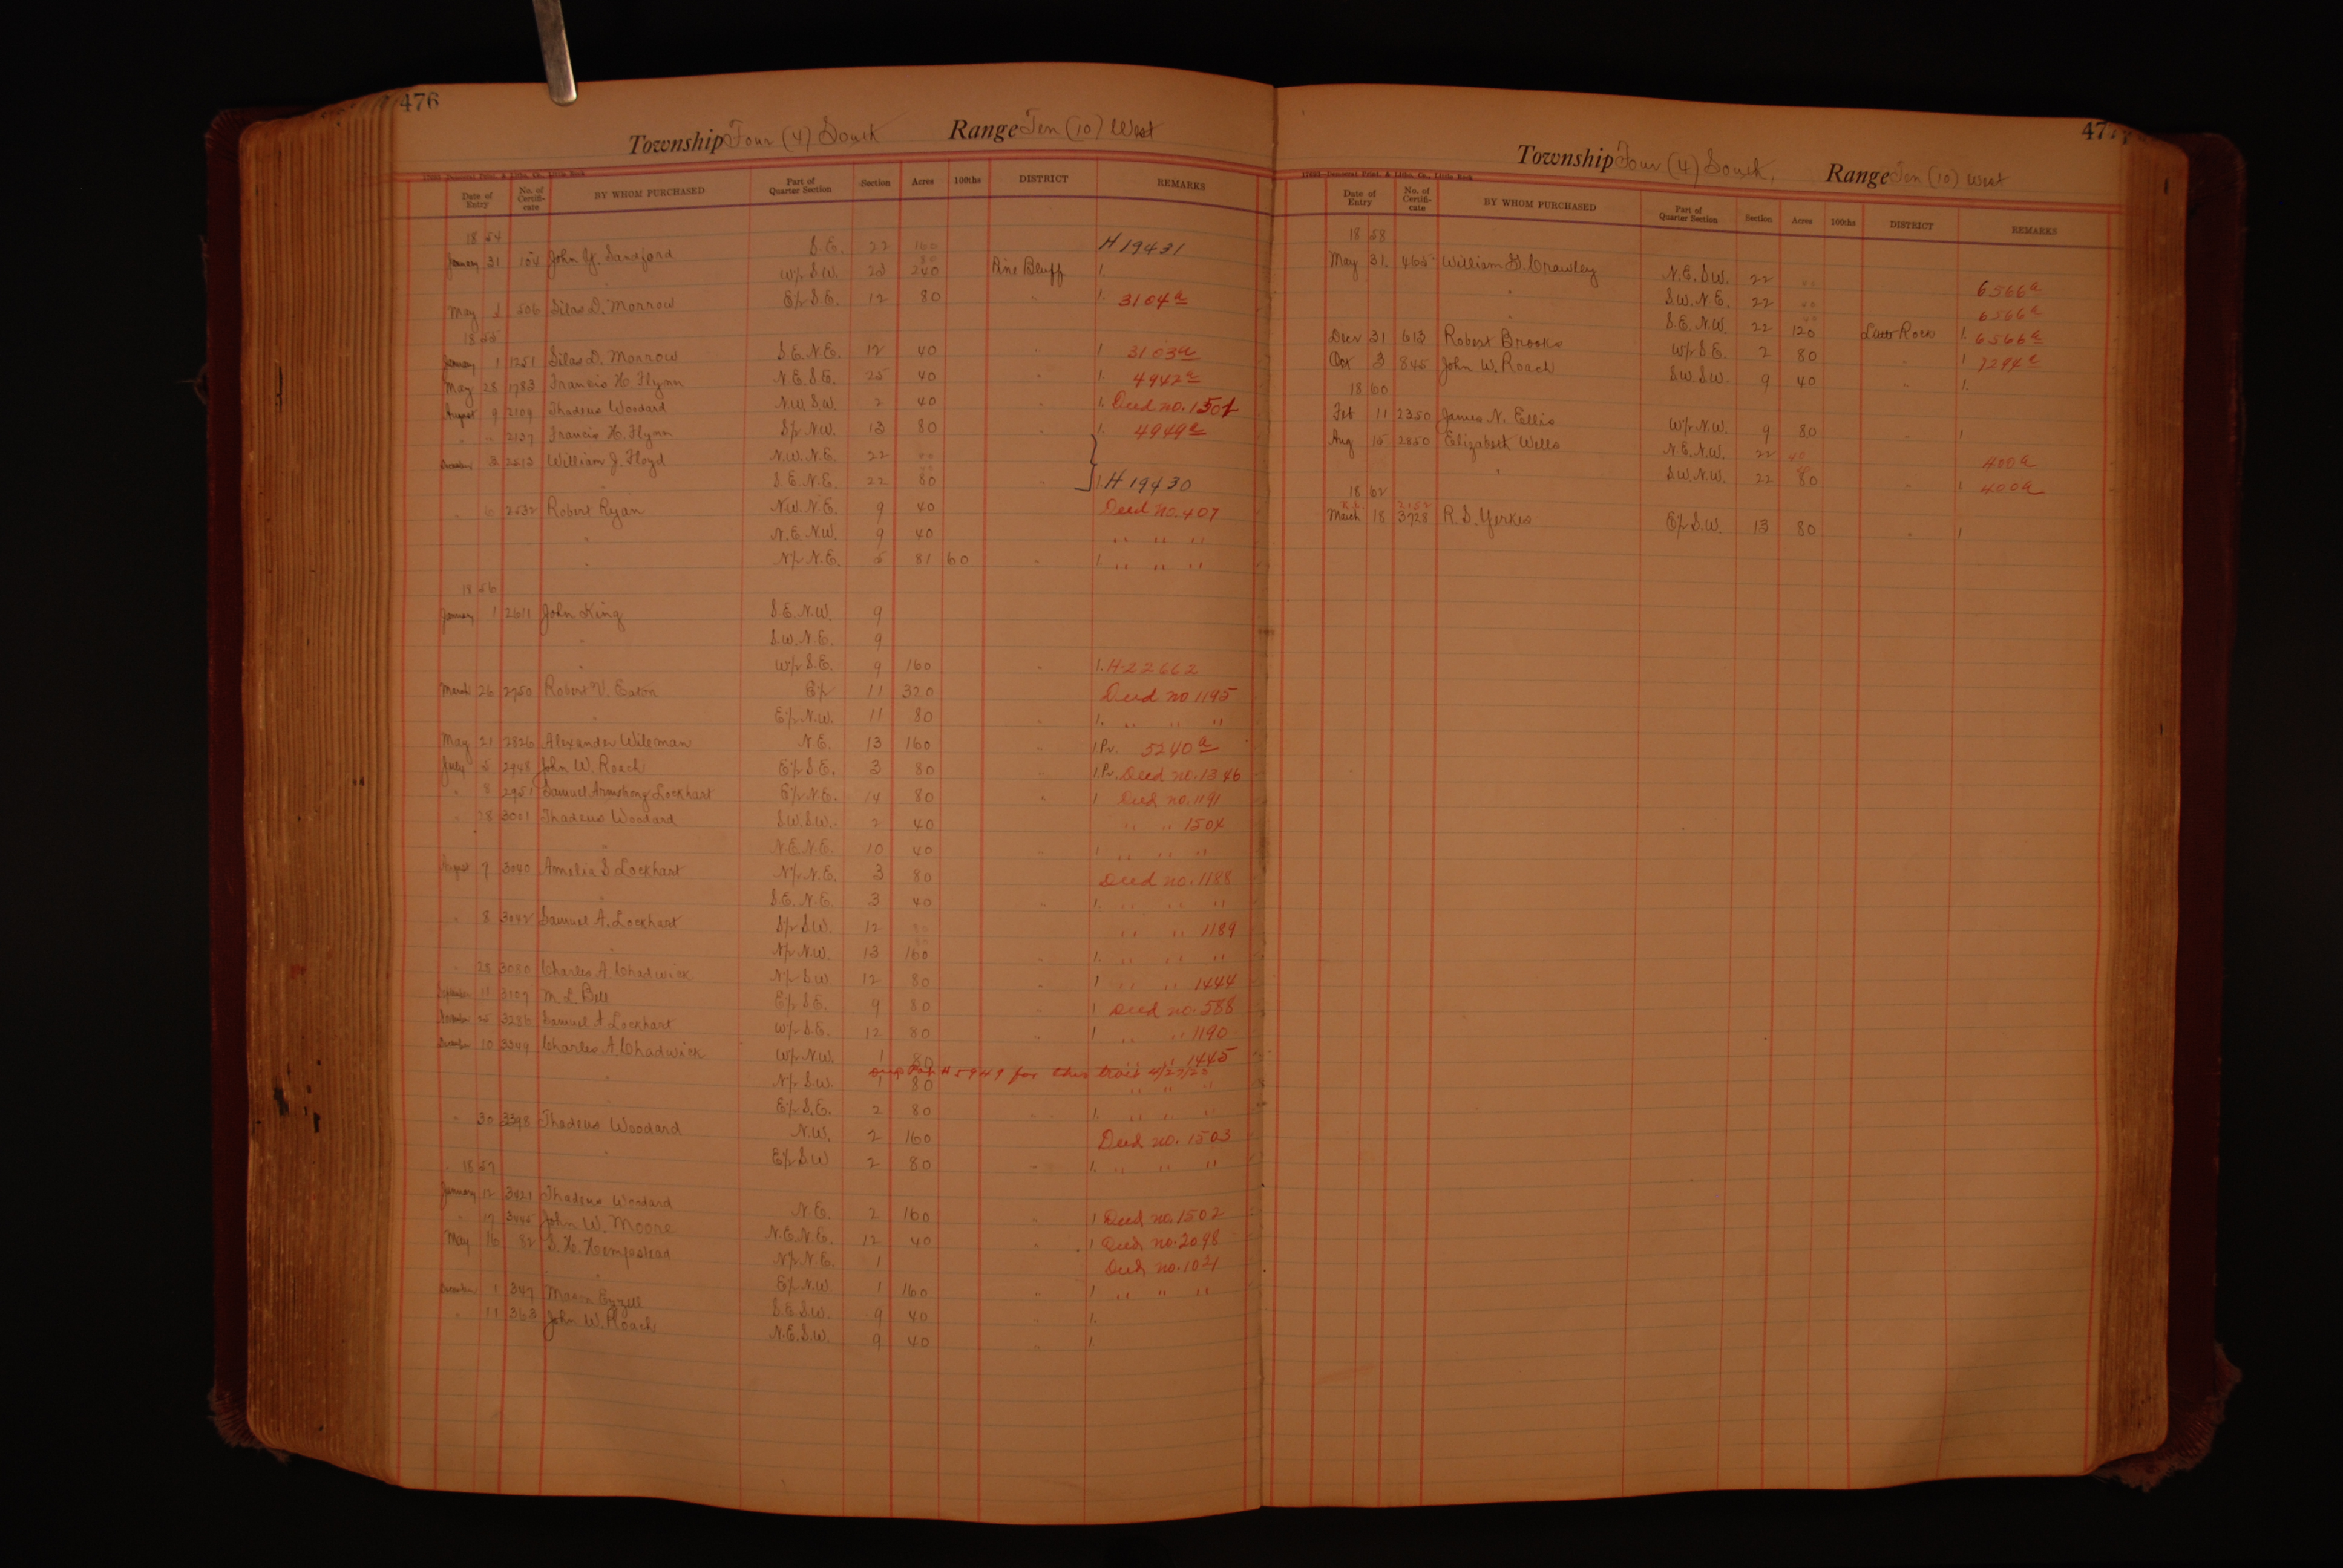 476
Township Four (4) South Range Ten (10) West
Date of Entry No. of Certifi-cate BY WHOM PURCHASED Part of Quarter Section Section Acres 100ths DISTRICT REMARKS
1854
January 31 John Y. Sandford S.E. 22 160 H 19431
" W½ S.W. 23 80 240 Pine Bluff 1.
May 1 506 Silas D. Morrow E½ S.E. 12 80 " 1. 3104a
1855
January 1 1251 Silas D. Morrow S.E. N.E. 12 40 " 1 3103a
May 28 1783 Francis H. Flynn N.E. S.E. 25 40 " 1. 4942a
August 9 2109 Thadeus Woodard N.W. S.W. 2 40 " 1. Deed no. 1501
" " 2137 Francis H. Flynn S½ N.W. 13 80 " 1. 4949a
December 3 2513 William J. Floyd N.W. N.E. 22
" S.E. N.E. 22 80 " 1. H 19430
" 6 2532 Robert Ryan N.W. N.E. 9 40 Deed no. 407
" N.E. N.W. 9 40 " " "
" N½ N.E. 5 81 60 " 1. " " "
1856
January 1 2611 John King S.E. N.W. 9
" S.W. N.E. 9
" W½ S.E. 9 160 " 1. H-22662
March 26 2750 Robert V. Eaton E½ 11 320 Deed no 1195
" E½ N.W. 11 80 " 1. " " "
May 21 2826 Alexander Wileman N.E. 13 160 " 1 Pr. 5240a
July 5 2948 John W. Roach E½ S.E. 3 80 " 1. Pr. Deed no. 1346
" 8 2951 Samuel Armstrong Lockhart E½ N.E. 14 80 " 1 Deed no. 1191
" 28 3001 Thadeus Woodard S.W. S.W. 2 40 " " 1504
" N.E. N.E. 10 40 " 1 " " "
August 7 3040 Amelia S Lockhart N½ N.E. 3 80 Deed no. 1188
" S.E. N.E. 3 40 " 1. " " "
" 8 3042 Samuel A. Lockhart S½ S.W. 12 80 " " 1189
" N½ N.W. 13 80 160 " 1. " " "
" 28 3080 Charles A Chadwick N½ S.W 12 80 " 1 " " 1444
September 3107 M. L. Bell E½ S.E. 9 80 " 1 Deed no. 588
25 3286 Samuel A Lockhart W½ S.E. 12 80 " 1 " " 1190
December 10 3349 Charles A. Chadwick W½ N.W. 1 80 " " 1445
H 5949 for this tract
" N½ S.W. 1 80 " " "
" E½ S.E. 2 80 " 1. " " "
" 30 3398 Thadeus Woodard N.W. 2 160 Deed no. 1503
" E½ S.W 2 80 " 1. " " "
1857
January 12 3421 Thadeus Woodard N.E. 2 160 " 1 Deed no. 1502
" 17 3445 John W. Moore N.E. N.E. 12 40 " 1 Deed no. 2098
May 16 82 S. H. Hempstead N½ N.E. 1 Deed no. 1021
" E½ N.W 1 160 " 1 " " "
December 1 347 S.E S.W. 9 40 " 1.
" 11 363 John W. Roach N.E. S.W. 9 40 " 1.
477
Township Four (4) South, Range Ten (10) West
Date of Entry No. of Certifi-cate BY WHOM PURCHASED Part of Quarter Section Section Acres 100ths DISTRICT REMARKS
1858
May 31. 465 William D. Crawley N.E. S.W. 22 40 6566a
" S.W. N.E. 22 40 6566a
" S.E. N.W. 22 40 120 Little Rock 1. 6566a
Decr 31 613 Robert Brooks W½ S.E. 2 80 " 1 7294a
Oct 3 845 John W. Roach S.W. S.W. 9 40 " 1.
1860
Feb 11 2350 James N. Ellis W½ N.W. 9 80 " 1
Aug 15 2850 Elizabeth Wells N.E. N.W. 22 40 400a
" S.W. N.W. 22 40 80 " 1 400a
1862
March 18 3728 R. S. Yerkes E½ S.W. 13 80 " 1